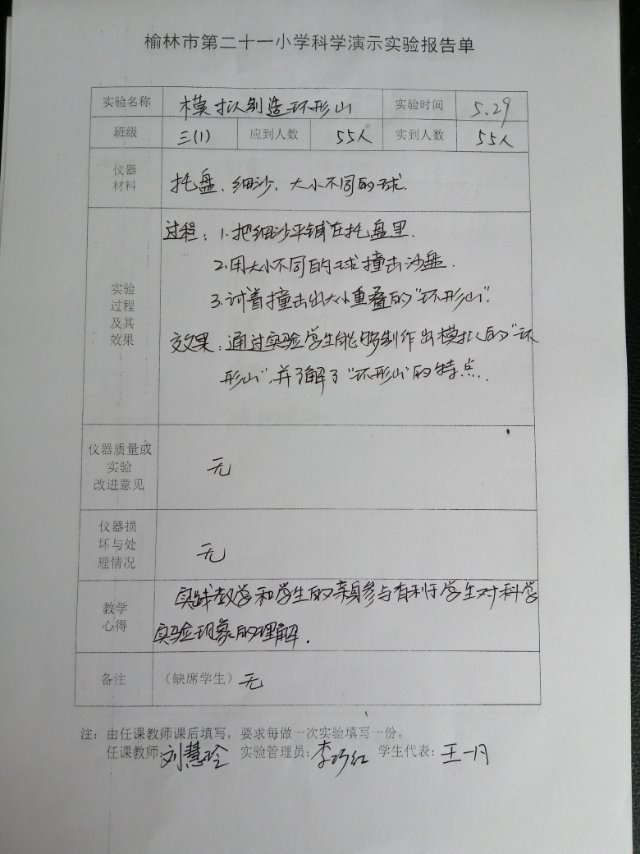 榆林市第二十一小学科学演示实验报告单
实验名称 模拟制造环形山 实验时间 5.29
班级 三(1) 应到人数 55人 实到人数 55人
仪器
材料
托盘、细沙、大小不同的球.
实验
过程
及其
效果
过程：1.把细沙平铺在托盘里.
2.用大小不同的球撞击沙盘.
3.试着撞击出大小重叠的"环形山".
效果：通过实验学生能够制作出模拟的"环
形山",并了解了"环形山"的特点.
仪器质量或
实验
改进意见
无
仪器损
坏与处
理情况
无
教学
心得
实践教学和学生的亲身参与有利于学生对科学
实验现象的理解.
备注 （缺席学生）无
注：由任课教师课后填写，要求每做一次实验填写一份。
任课教师:刘慧玲 实验管理员:李巧红 学生代表:王一丹